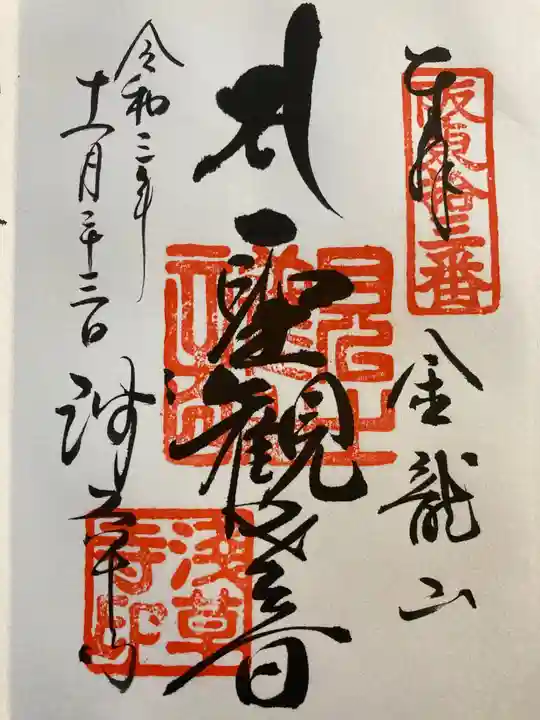 奉拝
坂東拾三番
金龍山
聖観世音
浅草寺
浅草寺印
令和三年
十一月二十三日